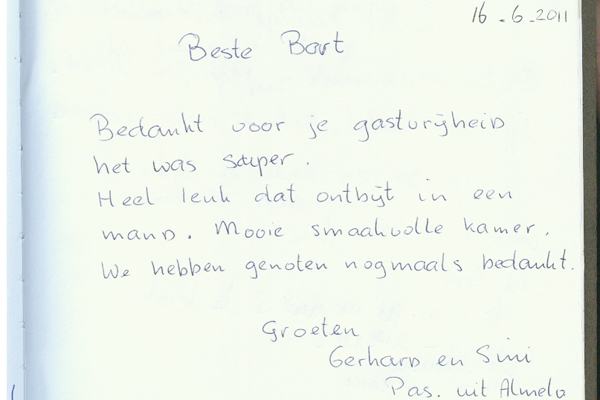 16-6-2011
Beste Bart
Bedankt voor je gastvrijheid
het was super.
Heel leuk dat ontbijt in een
mand. Mooie smaakvolle kamer.
We hebben genoten nogmaals bedankt.
Groeten
Gerhard en Sini
Pas. uit Almelo